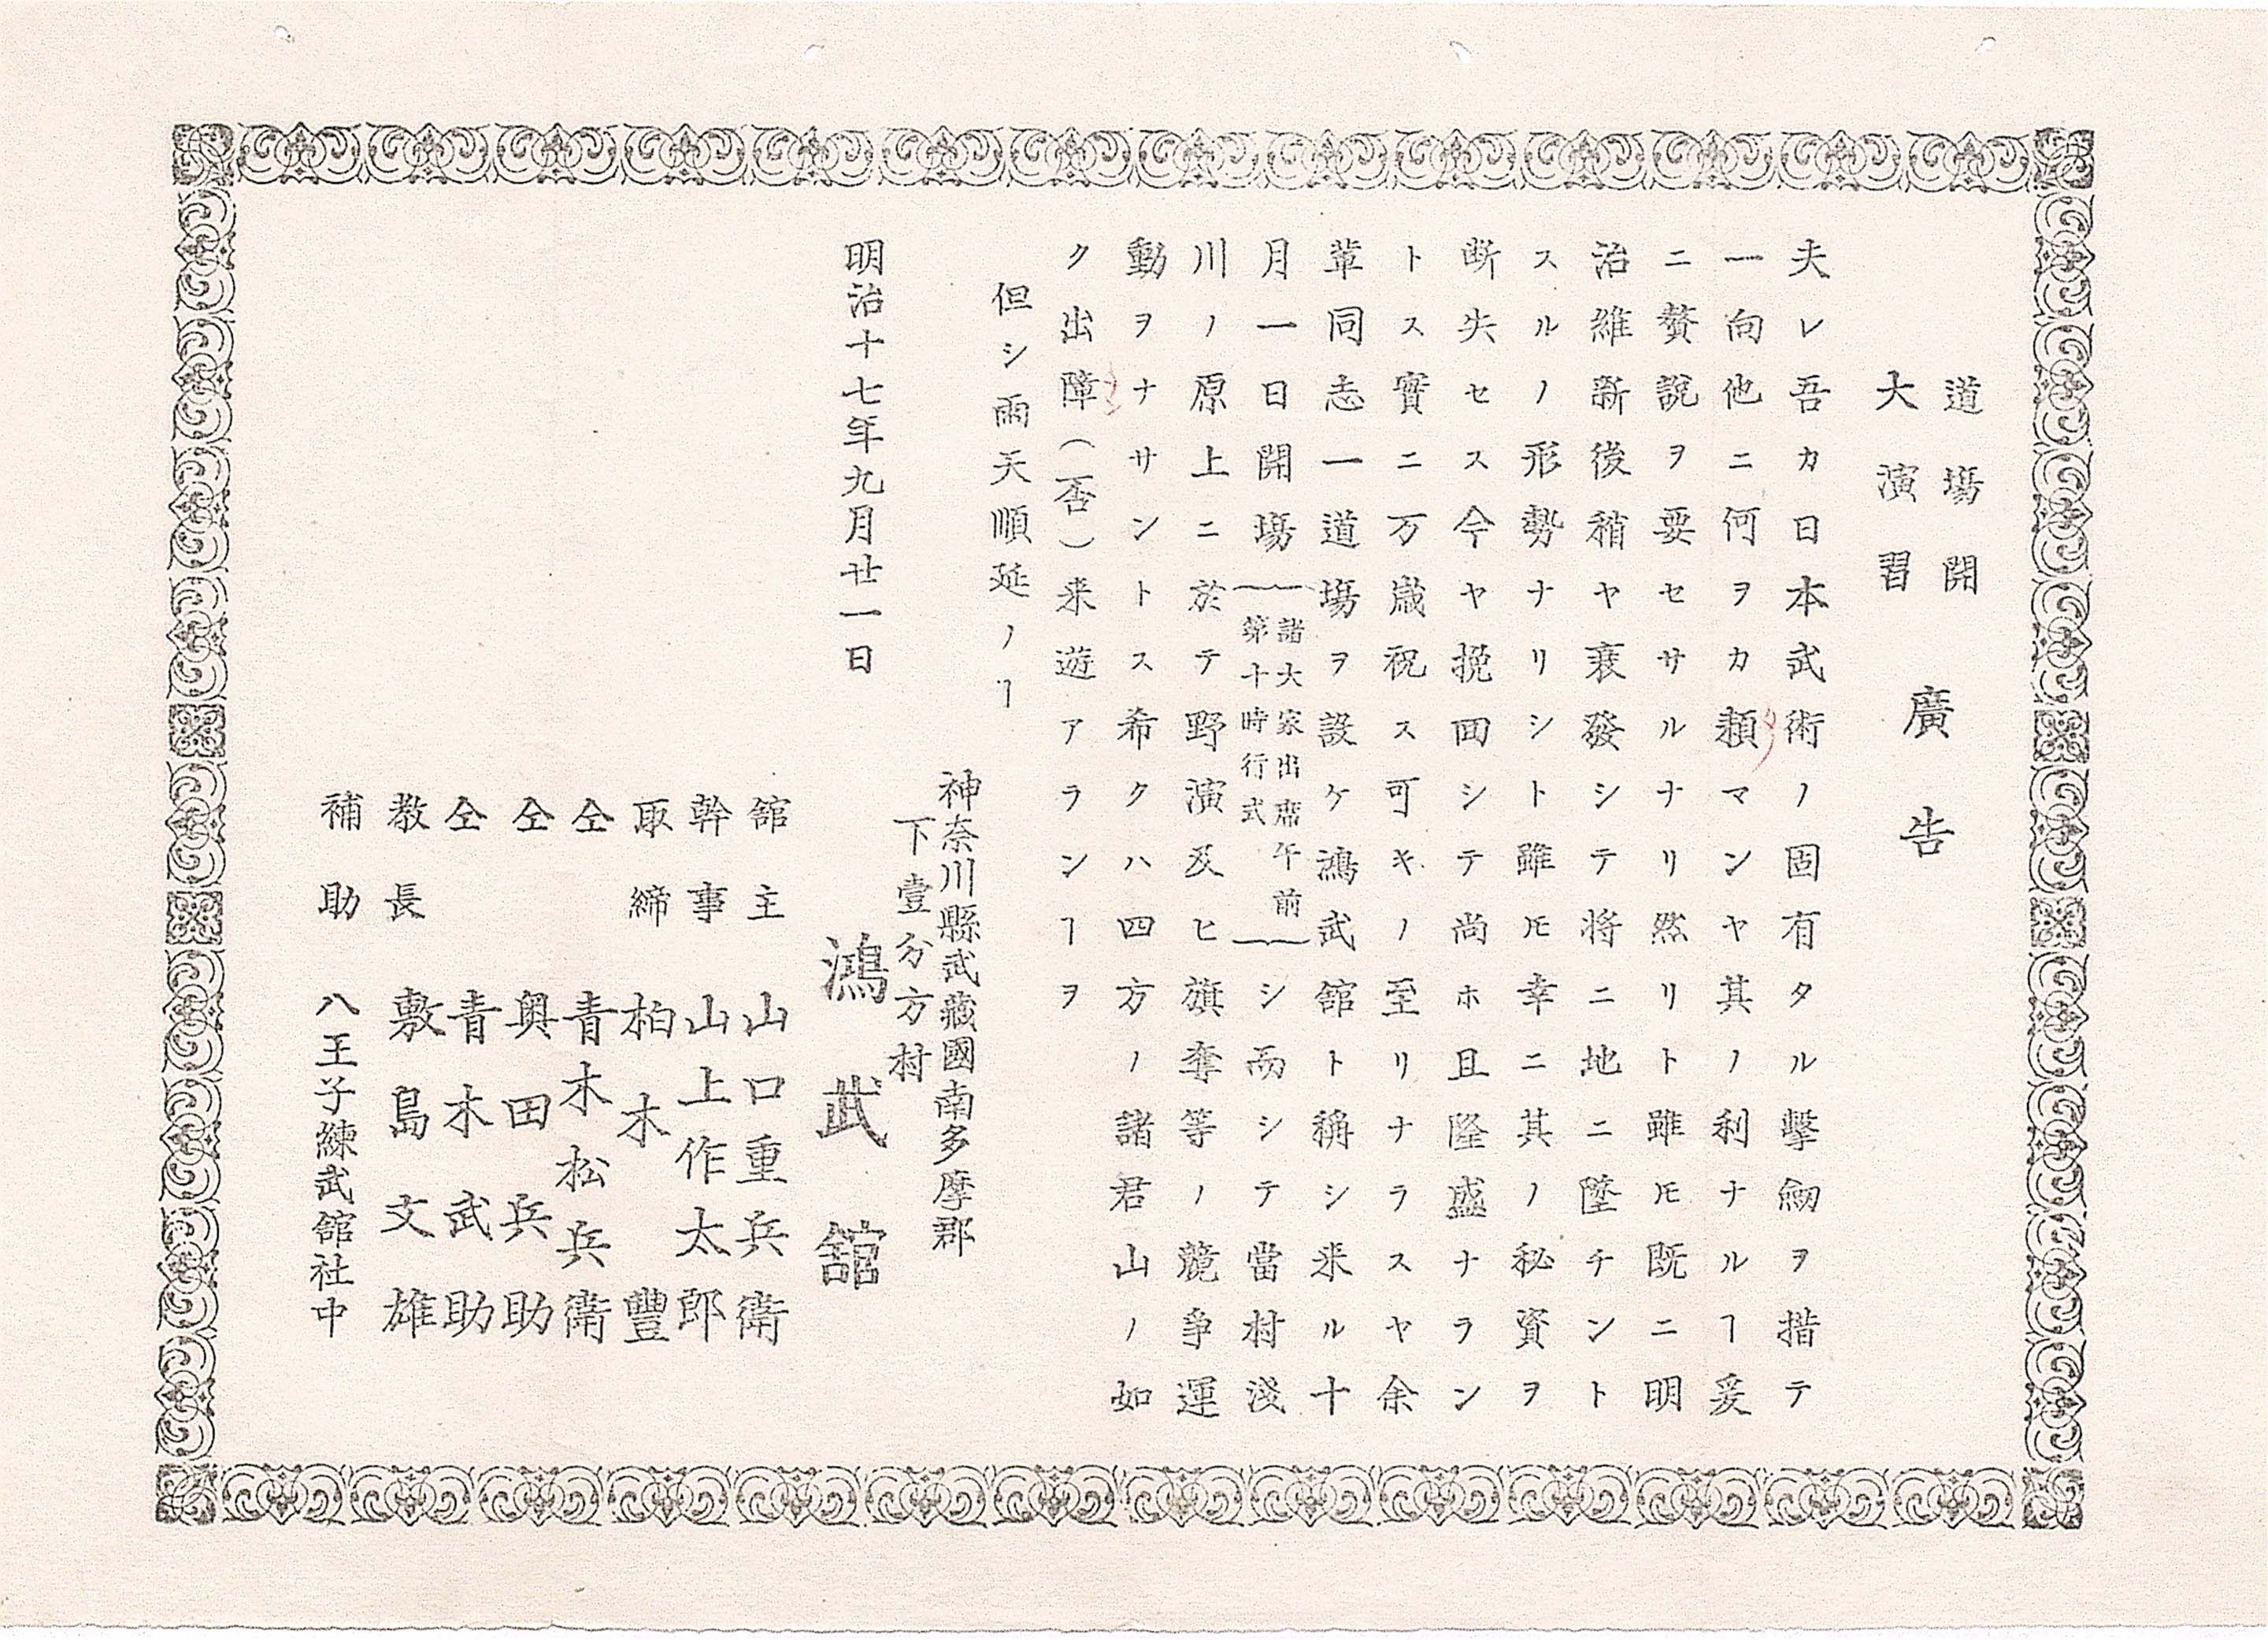 道場開
大演習
廣告
夫レ吾カ日本武術ノ固有タル擊劔ヲ措テ
一向他ニ何ヲカ頼マンヤ其ノ利ナルヿ爰
ニ贅說ヲ要セサルナリ然リト雖𪜈既ニ明
治維新後稍ヤ衰發シテ将ニ地ニ墜チント
スルノ形勢ナリシト雖𪜈幸ニ其ノ秘資ヲ
断失セス今ヤ挽回シテ尚ホ且隆盛ナラン
トス實ニ万歳祝ス可キノ至リナラスヤ余
輩同志一道場ヲ設ケ鴻武舘ト稱シ来ル十
月一日開場︷諸大家出席午前
第十時行式︸シ而シテ當村淺
川ノ原上ニ於テ野演及ヒ旗奪等ノ競争運
動ヲナサントス希クハ四方ノ諸君山ノ如
ク出障(否)来遊アランヿヲ
但シ雨天順延ノヿ
神奈川縣武藏國南多摩郡
下壹分方村
明治十七年九月廿一日
鴻武舘
舘主 山口重兵衛
幹事 山上作太郎
取締 柏木豐
仝 青木松兵衛
仝 奥田兵助
仝 青木武助
教長 敷島文雄
補助 八王子練武舘社中